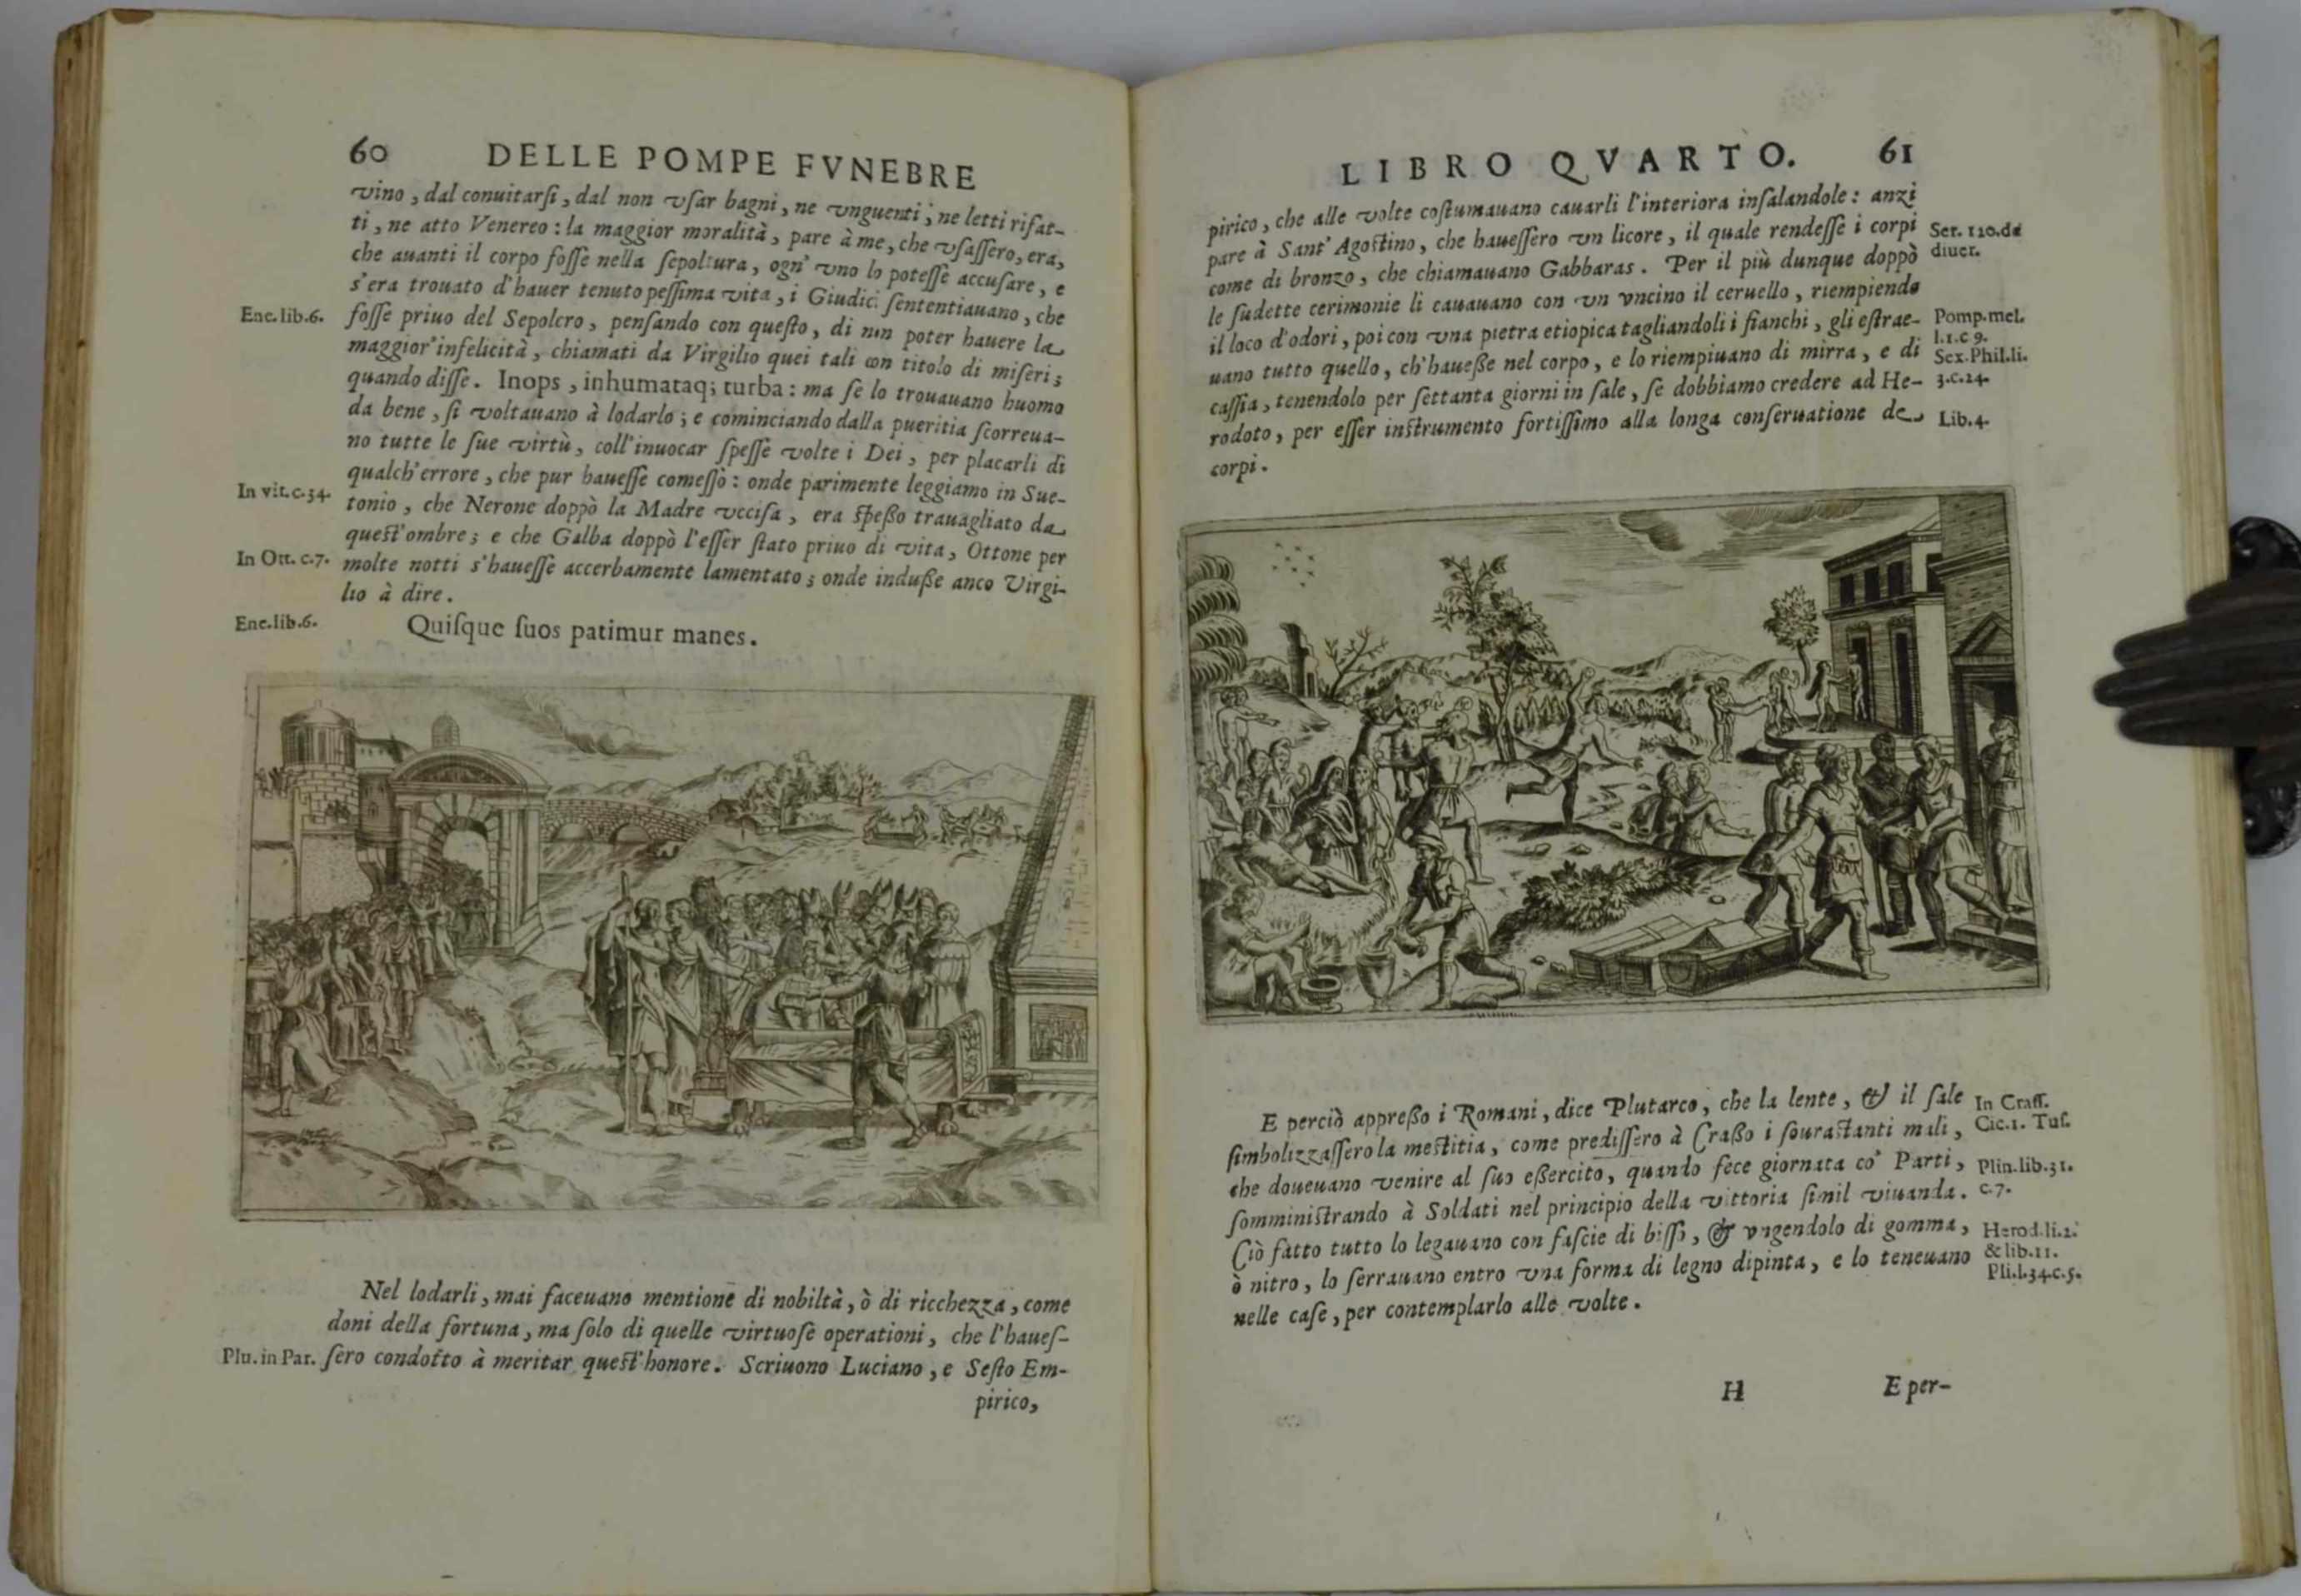 60 DELLE POMPE FVNEBRE
vino, dal conuitarſi, dal non vſar bagni, ne vnguenti, ne letti rifat-
ti, ne atto Venereo: la maggior moralità, pare à me, che vſaſſero, era,
che auanti il corpo foſſe nella ſepoltura, ogn' vno lo poteſſe accuſare, e
s'era trouato d'hauer tenuto peſſima vita, i Giudici ſententiauano, che
Ene. lib. 6.
foſſe priuo del Sepolcro, penſando con queſto, di non poter hauere la
maggior'infelicità, chiamati da Virgilio quei tali con titolo di miſeri;
quando diſſe. Inops, inhumataq; turba: ma ſe lo trouauano huomo
da bene, ſi voltauano à lodarlo; e cominciando dalla pueritia ſcorreua-
no tutte le ſue virtù, coll'inuocar ſpeſſe volte i Dei, per placarli di
qualch'errore, che pur haueſſe comeſſo: onde parimente leggiamo in Sue-
In vit. c. 34.
tonio, che Nerone doppò la Madre vcciſa, era ſpeßo trauagliato da
queſt'ombre; e che Galba doppò l'eſſer ſtato priuo di vita, Ottone per
In Ott. c. 7.
molte notti s'haueſſe accerbamente lamentato; onde induße anco Virgi-
lio à dire.
Ene. lib. 6.
Quiſque ſuos patimur manes.
Nel lodarli, mai faceuano mentione di nobiltà, ò di ricchezza, come
doni della fortuna, ma ſolo di quelle virtuoſe operationi, che l'haueſ-
Plu. in Par.
ſero condotto à meritar queſt'honore. Scriuono Luciano, e Seſto Em-
pirico,
LIBRO QVARTO. 61
pirico, che alle volte coſtumauano cauarli l'interiora inſalandole: anzi
pare à Sant' Agoſtino, che haueſſero vn licore, il quale rendeſſe i corpi
Ser. 120. de
diuer.
come di bronzo, che chiamauano Gabbaras. Per il più dunque doppò
le ſudette cerimonie li cauauano con vn vncino il ceruello, riempiendo
il loco d'odori, poi con vna pietra etiopica tagliandoli i fianchi, gli eſtrae-
Pomp. mel.
l. 1. c 9.
uano tutto quello, ch'haueße nel corpo, e lo riempiuano di mirra, e di
Sex. Phil. li.
3. c. 24.
caſſia, tenendolo per ſettanta giorni in ſale, ſe dobbiamo credere ad He-
rodoto, per eſſer inſtrumento fortiſſimo alla longa conſeruatione de
Lib. 4.
corpi.
E perciò appreßo i Romani, dice Plutarco, che la lente, & il ſale
In Craſſ.
ſimbolizzaſſero la meſtitia, come prediſſero à Craßo i ſouraſtanti mali,
Cic. 1. Tuſ.
che doueuano venire al ſuo eßercito, quando fece giornata co' Parti,
Plin. lib. 31.
c. 7.
ſomminiſtrando à Soldati nel principio della vittoria ſimil viuanda.
Ciò fatto tutto lo legauano con faſcie di biſſo, & vngendolo di gomma,
Herod. li. 2.
& lib. 11.
ò nitro, lo ſerrauano entro vna forma di legno dipinta, e lo teneuano
Pli. l. 34. c. 5.
nelle caſe, per contemplarlo alle volte.
H E per-